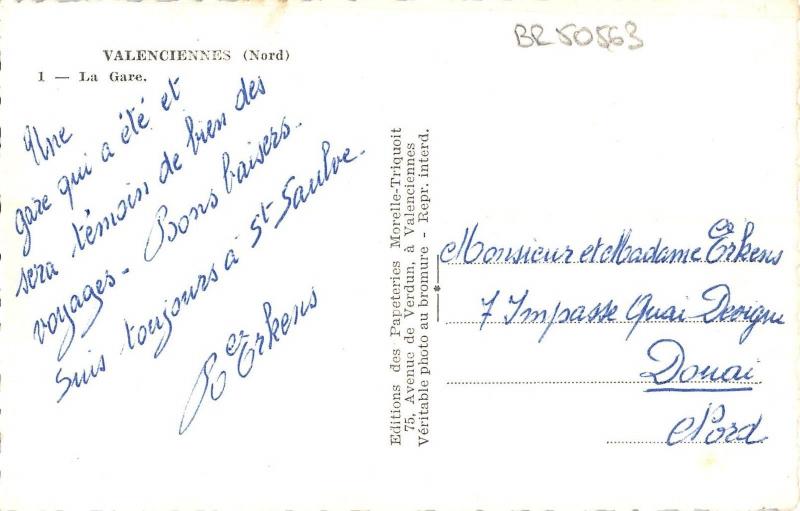 BR 50563
VALENCIENNES (Nord)
1 — La Gare.
Une
gare qui a été et
sera témoin de bien des
voyages - Bons baisers.
Suis toujours à St Saulve.
Erkens
Editions des Papeteries Morelle-Triquoit
75, Avenue de Verdun, à Valenciennes
Véritable photo au bromure - Repr. interd.
Monsieur et Madame Erkens
7 Impasse Quai Devigne
Douai
Nord